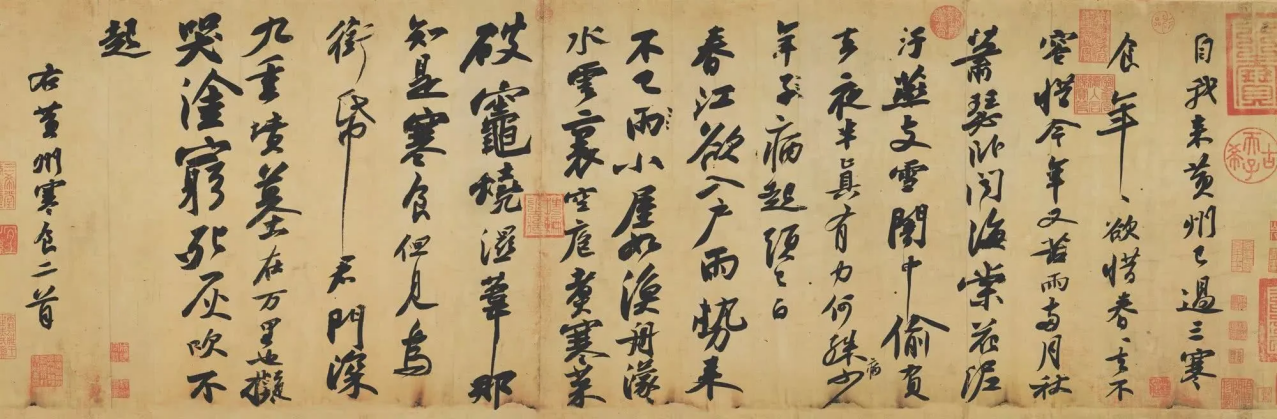 自我来黄州已過三寒
食年〻欲惜春〻去不
容惜今年又苦雨两月秋
蕭瑟卧聞海棠花泥
汙燕支雪闇中偷負
去夜半真有力何殊少
病
年子病起須已白
春江欲入户雨勢来
不已雨小屋如漁舟濛〻
水雲裏空庖煑寒菜
破竈燒濕葦那
知是寒食但見烏
銜帋君門深
九重墳墓在万里也擬
哭塗窮死灰吹不
起
右黄州寒食二首
古希天子